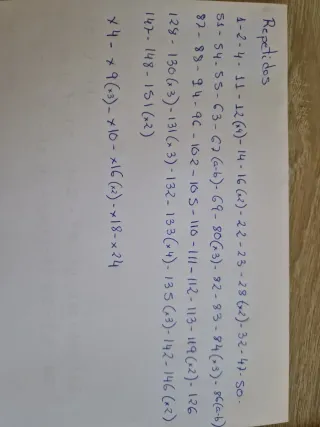 Repetidos
1-2-4-11-12(x4)-14-16(x2)-22-23-28(x2)-32-47-50-
51-54-55-63-67(a-b)-69-80(x3)-82-83-84(x3)-86(a-b)
87-88-94-96-102-105-110-111-112-113-119(x2)-126
128-130(x3)-131(x3)-132-133(x4)-135(x3)-142-146(x2)
147-148-151(x2)
x4-x9(x3)-x10-x16(x2)-x18-x24